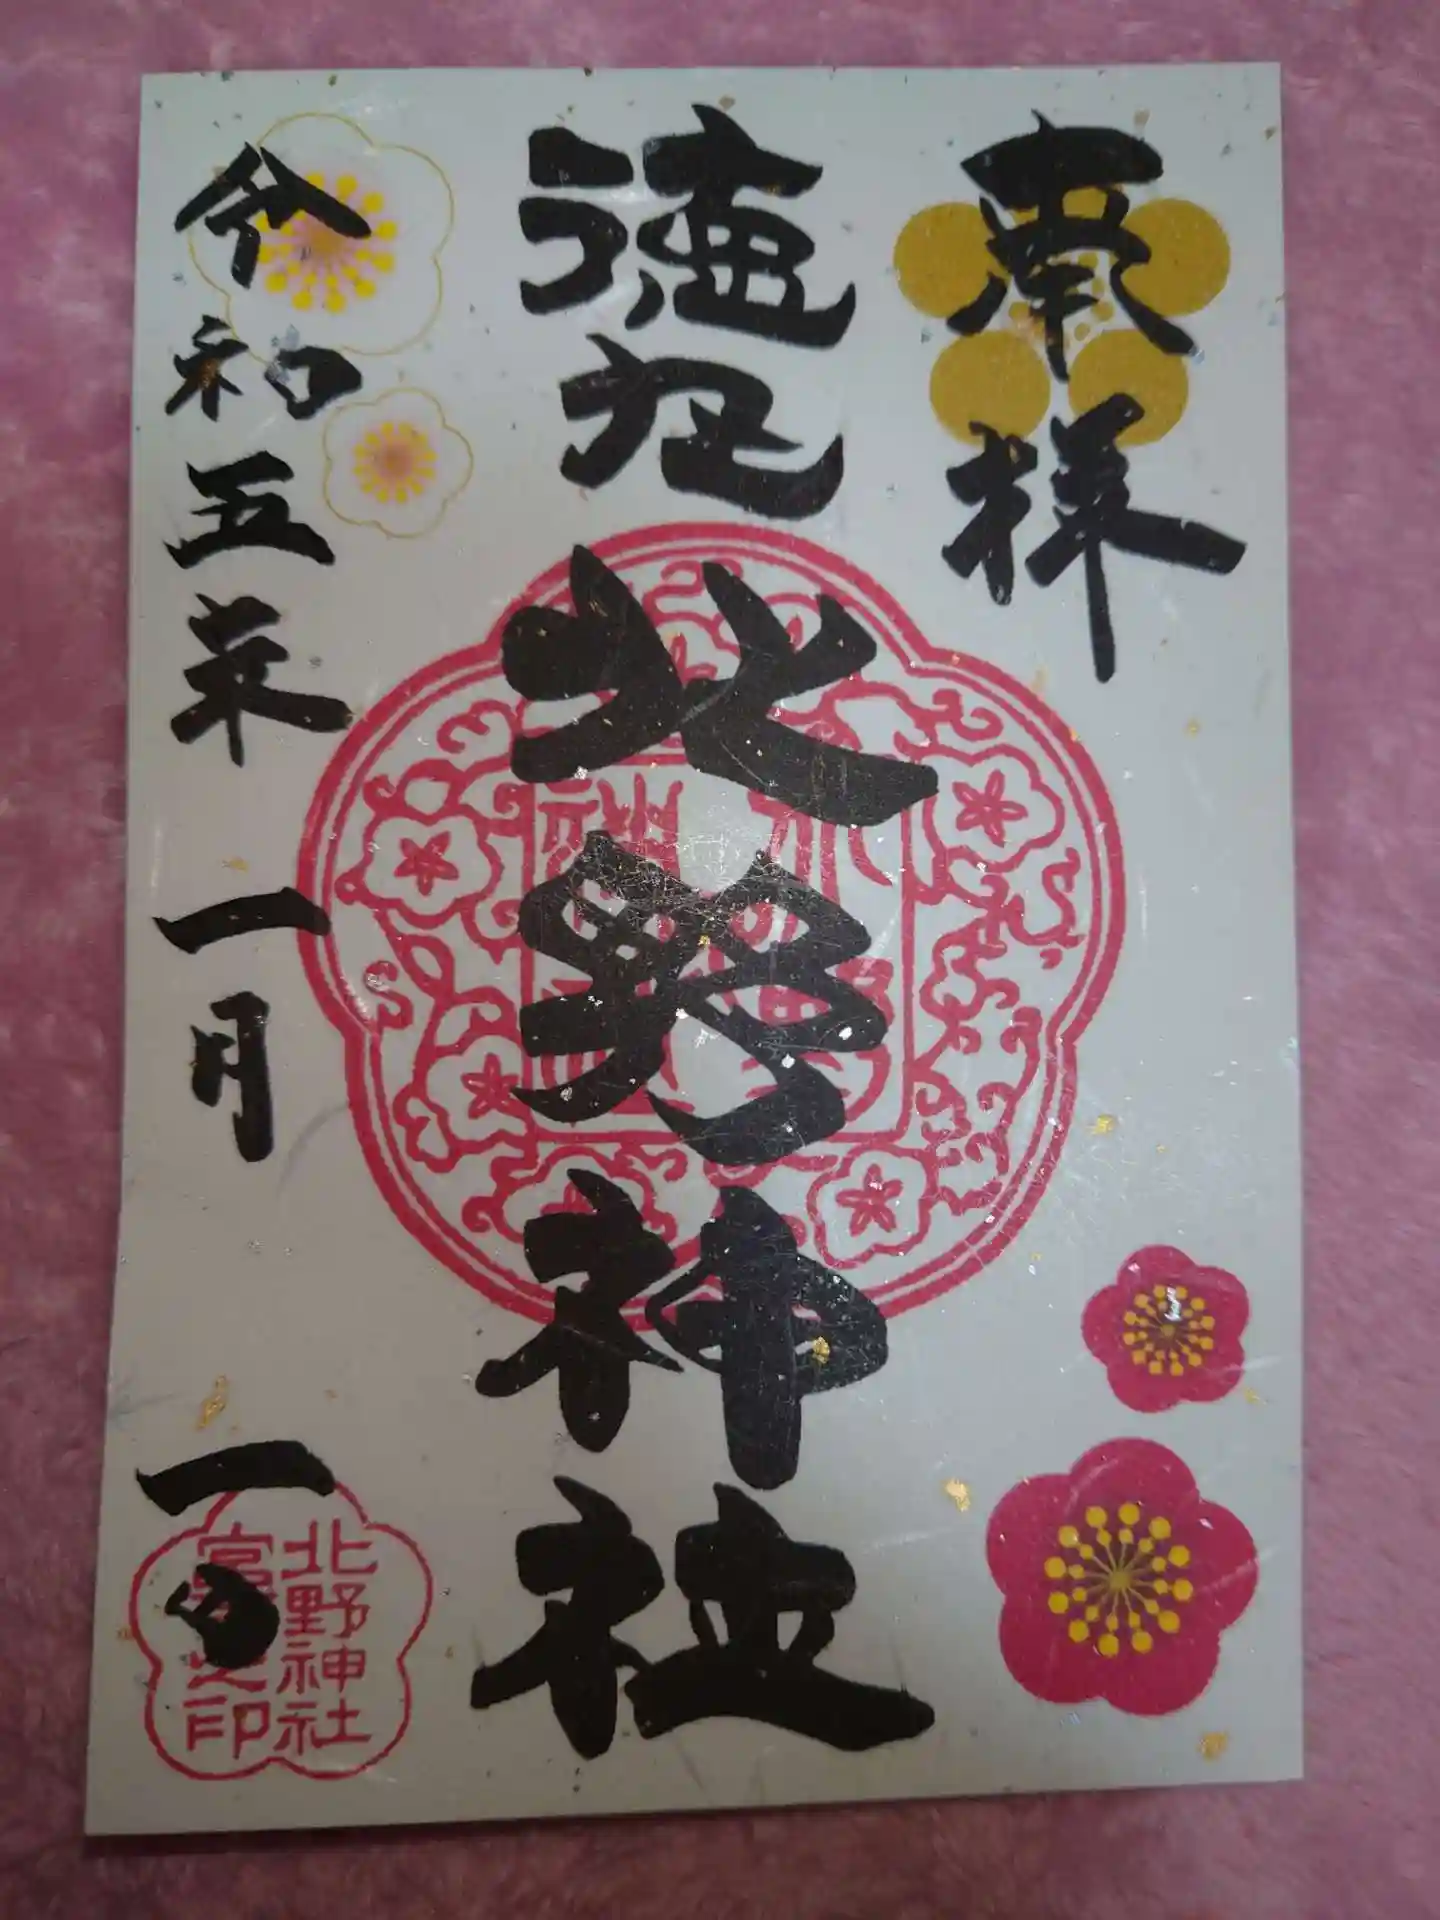 奉拝
徳丸北野神社
令和五年一月一日
北野神社
宮司之印